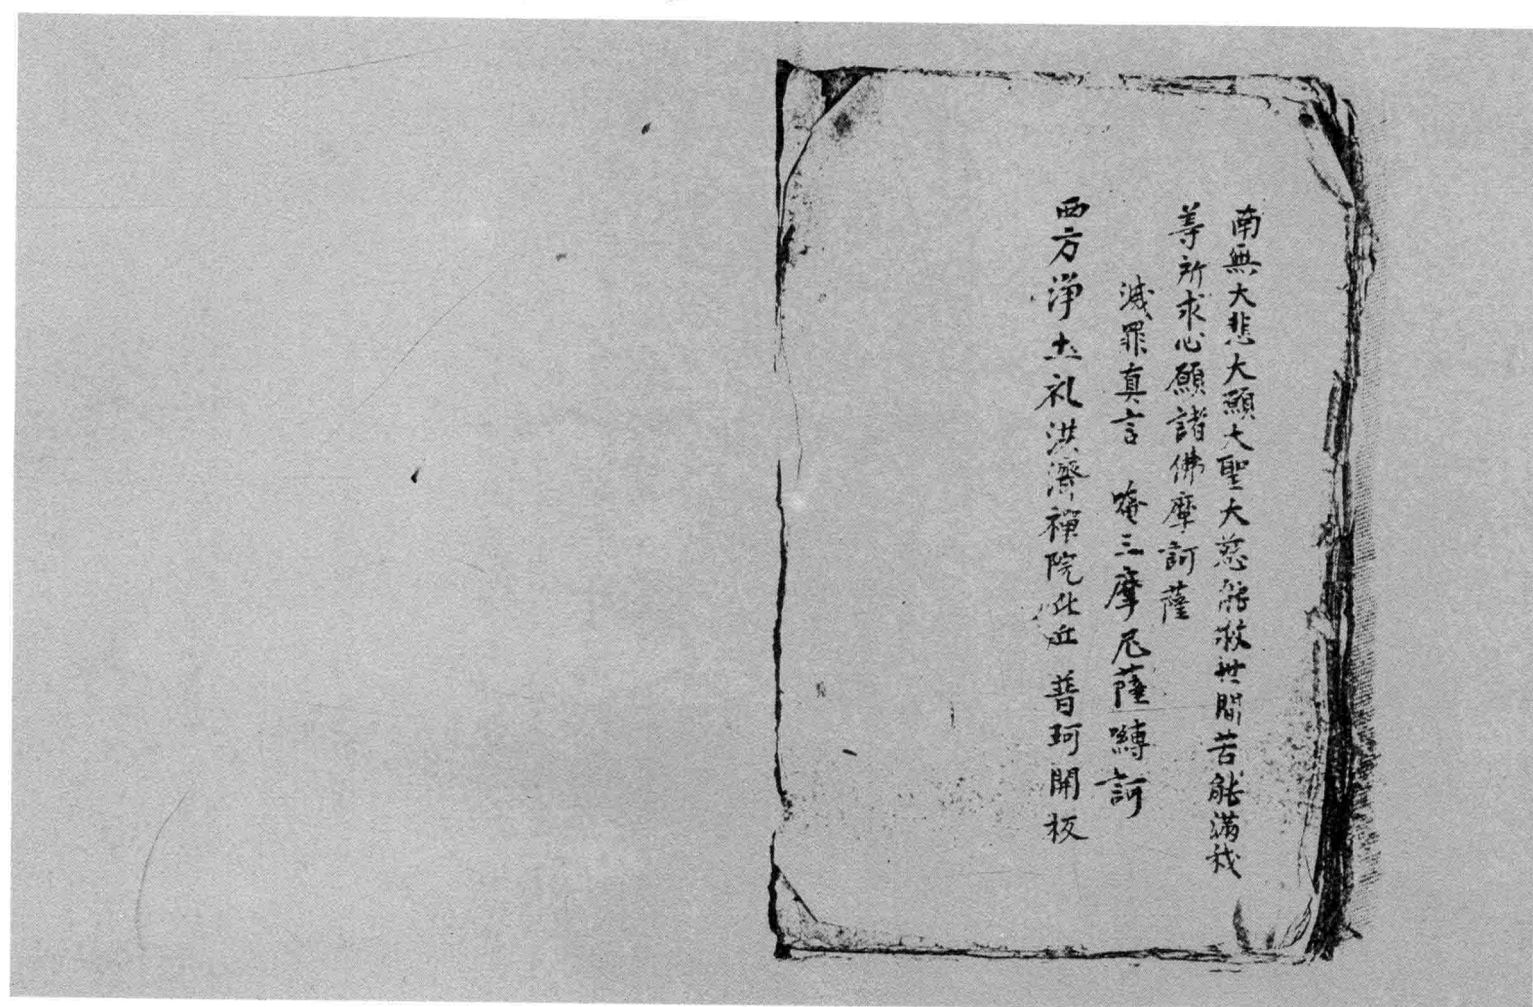 南無大悲大願大聖大慈能救世間苦能滿我
等所求心願諸佛摩訶薩
滅罪真言 唵三摩尼薩嚩訶
西方淨土礼洪濟禪院比丘 普珂開板